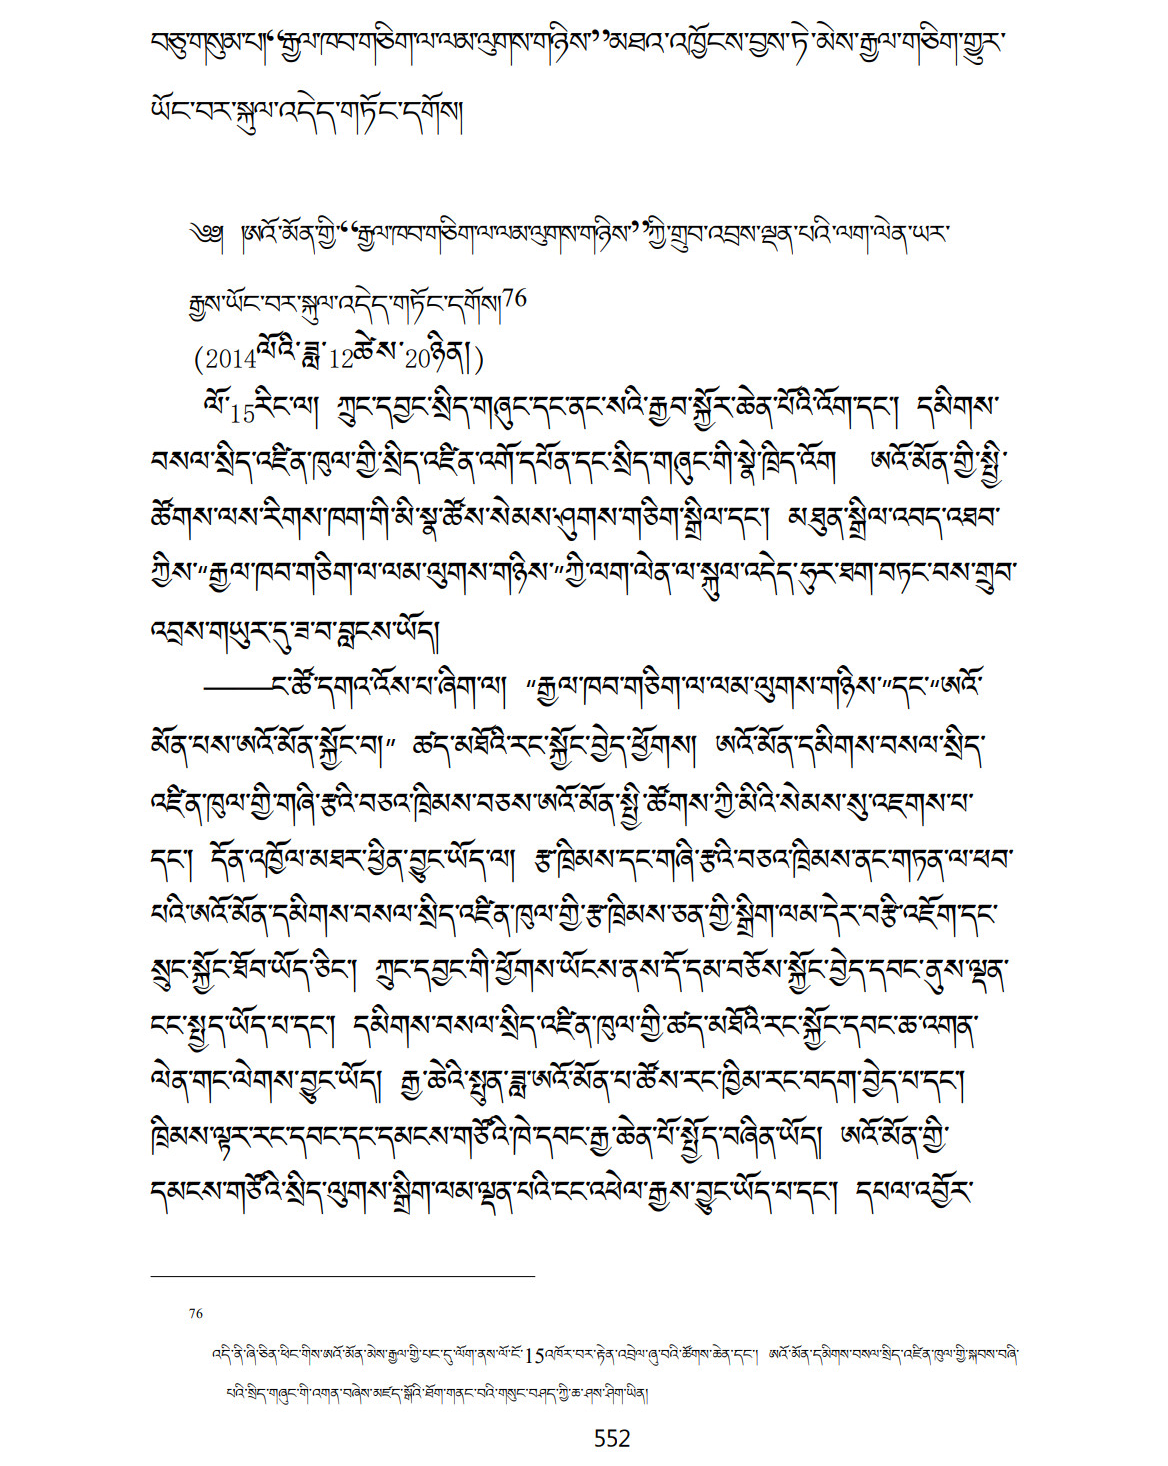 བཅུ་གསུམ་པ།“རྒྱལ་ཁབ་གཅིག་ལ་ལམ་ལུགས་གཉིས་”མཐའ་འཁྱོངས་བྱས་ཏེ་མེས་རྒྱལ་གཅིག་གྱུར་
ཡོང་བར་སྐུལ་འདེད་གཏོང་དགོས།
༄༅། །ཨའོ་མོན་གྱི་“རྒྱལ་ཁབ་གཅིག་ལ་ལམ་ལུགས་གཉིས་”ཀྱི་གྲུབ་འབྲས་ལྡན་པའི་ལག་ལེན་ཡར་
རྒྱས་ཡོང་བར་སྐུལ་འདེད་གཏོང་དགོས།76
(2014ལོའི་ཟླ་12ཚེས་20ཉིན།)
ལོ་15རིང་ལ། ཀྲུང་དབྱང་སྲིད་གཞུང་དང་ནང་སའི་རྒྱབ་སྐྱོར་ཆེན་པོའི་འོག་དང་། དམིགས་
བསལ་སྲིད་འཛིན་ཁུལ་གྱི་སྲིད་འཛིན་འགོ་དཔོན་དང་སྲིད་གཞུང་གི་སྣེ་ཁྲིད་འོག ཨའོ་མོན་གྱི་སྤྱི་
ཚོགས་ལས་རིགས་ཁག་གི་མི་སྣ་ཚོས་སེམས་ཤུགས་གཅིག་སྒྲིལ་དང་། མཐུན་སྒྲིལ་འབད་འཐབ་
ཀྱིས་“རྒྱལ་ཁབ་གཅིག་ལ་ལམ་ལུགས་གཉིས་”ཀྱི་ལག་ལེན་ལ་སྐུལ་འདེད་ཧུར་ཐག་བཏང་བས་གྲུབ་
འབྲས་གཡུར་དུ་ཟ་བ་བླངས་ཡོད།
———ང་ཚོ་དགའ་འོས་པ་ཞིག་ལ། “རྒྱལ་ཁབ་གཅིག་ལ་ལམ་ལུགས་གཉིས་”དང་“ཨའོ་
མོན་པས་ཨའོ་མོན་སྐྱོང་བ།” ཚད་མཐོའི་རང་སྐྱོང་བྱེད་ཕྱོགས། ཨའོ་མོན་དམིགས་བསལ་སྲིད་
འཛིན་ཁུལ་གྱི་གཞི་རྩའི་བཅའ་ཁྲིམས་བཅས་ཨའོ་མོན་སྤྱི་ཚོགས་ཀྱི་མིའི་སེམས་སུ་འཇགས་པ་
དང་། དོན་འཁྱོལ་མཐར་ཕྱིན་བྱུང་ཡོད་ལ། རྩ་ཁྲིམས་དང་གཞི་རྩའི་བཅའ་ཁྲིམས་ནང་གཏན་ལ་ཕབ་
པའི་ཨའོ་མོན་དམིགས་བསལ་སྲིད་འཛིན་ཁུལ་གྱི་རྩ་ཁྲིམས་ཅན་གྱི་སྒྲིག་ལམ་དེར་བརྩི་འཇོག་དང་
སྲུང་སྐྱོང་ཐོབ་ཡོད་ཅིང་། ཀྲུང་དབྱང་གི་ཕྱོགས་ཡོངས་ནས་དོ་དམ་བཅོས་སྐྱོང་བྱེད་དབང་ནུས་ལྡན་
ངང་སྤྱད་ཡོད་པ་དང་། དམིགས་བསལ་སྲིད་འཛིན་ཁུལ་གྱི་ཚད་མཐོའི་རང་སྐྱོང་དབང་ཆ་འགན་
ལེན་གང་ལེགས་བྱུང་ཡོད། རྒྱ་ཆེའི་སྤུན་ཟླ་ཨའོ་མོན་པ་ཚོས་རང་ཁྱིམ་རང་བདག་བྱེད་པ་དང་།
ཁྲིམས་ལྟར་རང་དབང་དང་དམངས་གཙོའི་ཁེ་དབང་རྒྱ་ཆེན་པོ་སྤྱོད་བཞིན་ཡོད། ཨའོ་མོན་གྱི་
དམངས་གཙོའི་སྲིད་ལུགས་སྒྲིག་ལམ་ལྡན་པའི་ངང་འཕེལ་རྒྱས་བྱུང་ཡོད་པ་དང་། དཔལ་འབྱོར་
76
འདི་ནི་ཞི་ཅིན་ཕིང་གིས་ཨའོ་མོན་མེས་རྒྱལ་གྱི་པང་དུ་ལོག་ནས་ལོ་ངོ་15འཁོར་བར་རྟེན་འབྲེལ་ཞུ་བའི་ཚོགས་ཆེན་དང་། ཨའོ་མོན་དམིགས་བསལ་སྲིད་འཛིན་ཁུལ་གྱི་སྐབས་བཞི་
པའི་སྲིད་གཞུང་གི་འགན་བཞེས་མཛད་སྒོའི་ཐོག་གནང་བའི་གསུང་བཤད་ཀྱི་ཆ་ཤས་ཤིག་ཡིན།
552